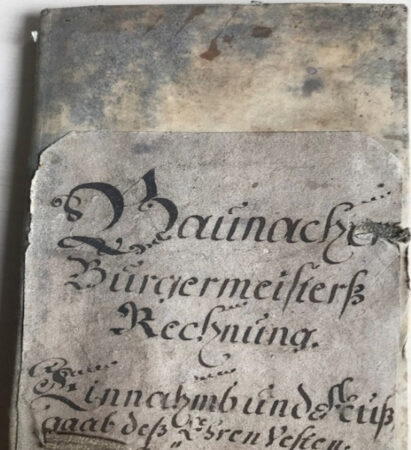 Baunacher
Burgermeisterß
Rechnung.
Einnahmb und Auß
gaab deß Ehren Vesten.